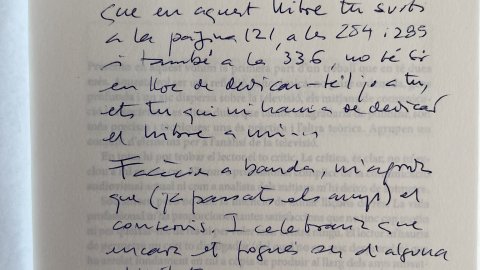 que en aquest llibre tu surts
a la pàgina 121 a les 284 i 299
i també a la 336, no té
en lloc de dedicar-te'l jo a tu,
ets tu qui m'hauria de dedicar
el llibre a mi.
Facècia a banda, m'agrada
que (ja passats els anys) el
conservis. I celebraré que
encara et pogués ser d'alguna